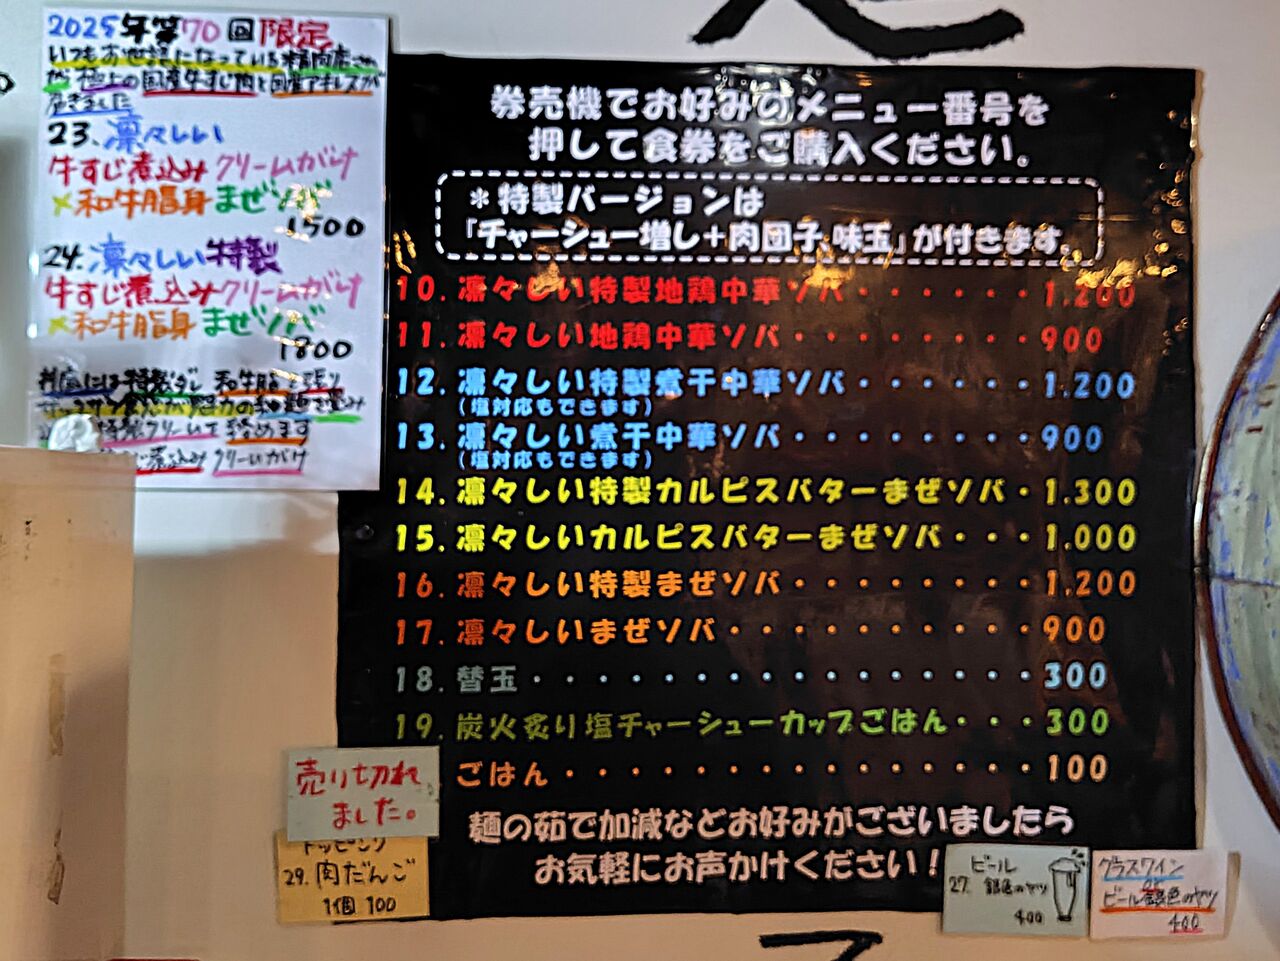 2025年第70回限定
いつもお世話になっている精肉店さん
が極上の国産牛すじ肉と国産アキレスが
届きました
23. 凛々しい
牛すじ煮込みクリームがけ
×和牛脂身まぜソバ
1500
24. 凛々しい特製
牛すじ煮込みクリームがけ
×和牛脂身まぜソバ
1800
特製ダレ 和牛脂
特製クリームで
煮込み クリームがけ
券売機でお好みのメニュー番号を
押して食券をご購入ください。
＊特製バージョンは
「チャーシュー増し＋肉団子、味玉」が付きます。
10. 凛々しい特製地鶏中華ソバ・・・・・・・1.200
11. 凛々しい地鶏中華ソバ・・・・・・・・・900
12. 凛々しい特製煮干中華ソバ・・・・・・・1.200
(塩対応もできます)
13. 凛々しい煮干中華ソバ・・・・・・・・・900
(塩対応もできます)
14. 凛々しい特製カルピスバターまぜソバ・1.300
15. 凛々しいカルピスバターまぜソバ・・・1.000
16. 凛々しい特製まぜソバ・・・・・・・・・1.200
17. 凛々しいまぜソバ・・・・・・・・・・・900
18. 替玉・・・・・・・・・・・・・・・・・・300
19. 炭火炙り塩チャーシューカップごはん・・・300
ごはん・・・・・・・・・・・・・・・・100
麺の茹で加減などお好みがございましたら
お気軽にお声かけください！
売り切れ
ました。
トッピング
29. 肉だんご
1個 100
ビール
27. 銀色のヤツ
400
グラスワイン
or
ビール銀色のヤツ
400